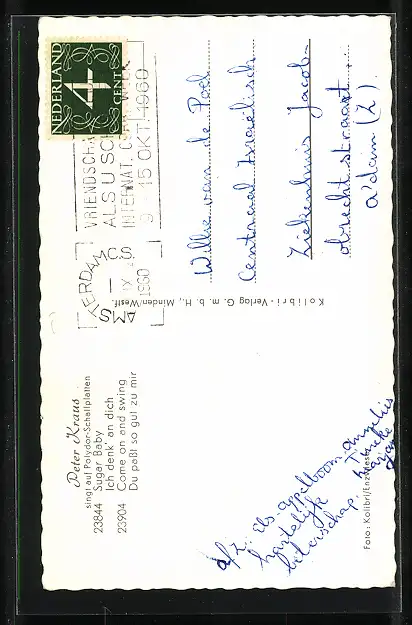 Peter Kraus
singt auf Polydor-Schallplatten
23844 Sugar Baby
Ich denk' an dich
23904 Come on and swing
Du paßt so gut zu mir
Kolibri-Verlag G. m. b. H., Minden/Westf.
Foto: Kolibri/
NEDERLAND
4
CENT
VRIENDSCHA
ALS U SCH
INTERNAT. C
9 - 15 OKT. 1960
AMSTERDAM C.S.
IX
1960
Willie van de Poch
Centraal Israëlisch
Ziekenhuis Jacob-
obrechtstraat
a'dam (Z).
afz. Els Appelboom.
hartelijk
beterschap.